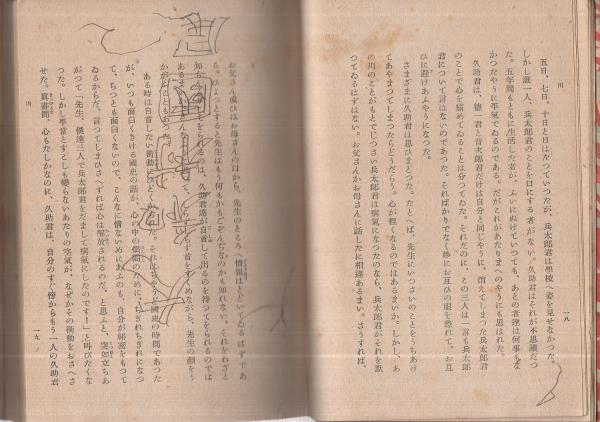 川
一八
五日、七日、十日と日はたつていつたが、兵太郎君は學校へ姿を見せなかつた。
しかし誰一人、兵太郎君のことを口にする者がない。久助君はそれが不思議だつ
た。五年間もともに生活した者が、ふいにぬけていつても、あとの者達は何事もな
かつたやうに平氣でゐるのである。だがこれがあたりまへのやうにも思はれた。
久助君は、德一君と音次郎君だけは自分と同じやうに、消えてしまつた兵太郎君
のことで心を痛めてゐることは分つてゐた。それだのに、この三人は一言も兵太郎
君について言はないのであつた。そればかりでなく妙にお互ひの眼を恐れて、お互
ひに避けあふやうになつた。
さまざまに久助君は思ひまどつた。たとへば、先生にいつさいのことをうちあけ
てあやまつてしまつたらどうだらう。心が輕くなるのではあるまいか。しかし、あ
の川のことがもとでじつさい兵太郎君は病氣になつたのなら、兵太郎君がそれを默
つてゐるはずはない。お父さんかお母さんに話したに相違あるまい。さうすれば、
お父さん或ひはお母さんの口から、先生のところへ情報はとどいてゐるはずであ
る。ひよつとすると先生はもう何もかもごぞんぢなのかも知れない。それをわざと
知らない
をしてをられるのは、久助君達が自首して出るのを待つてをられるのでは
あるまいか
らず首をすくめながら、先生の顏をう
かが
こともあつた。
ある時は自首したい衝動にひどくかられた。それは
國史の時間であつた
が、いつも面白くきける國史の話が、心の中の煩悶のために、ちぎれちぎれになつ
て、ちつとも面白くないので、こんな情ないめにあふのも、自分が祕密をもつて
ゐるからだ、言つてしまひさへすれば心は解放されるのだ、と思ふと、突如立ちあ
がつて「先生、僕達三人で兵太郎君をだまして病氣にしたのです！」と叫びたくな
つた。しかし平常とすこしも變らないあたりの空氣が、なぜかその衝動をおさへさ
せた。眞晝間、心もたしかなのに、久助君は、自分のすぐ傍からもう一人の久助君
川
一九